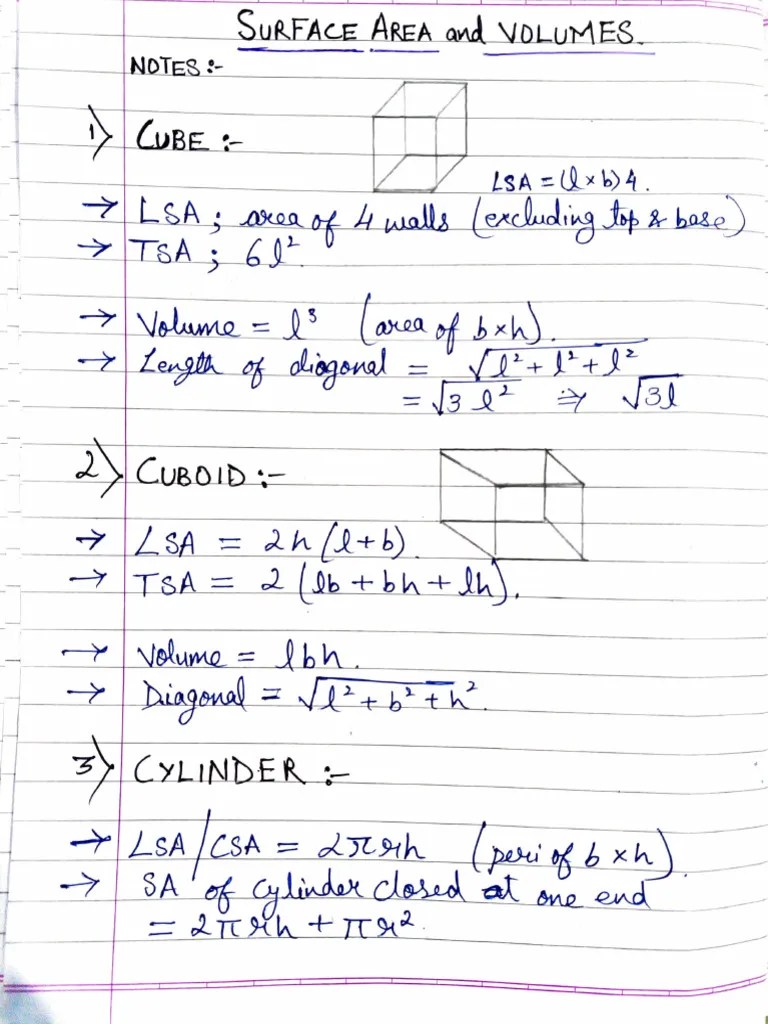 SURFACE AREA and VOLUMES.
NOTES :-
1) CUBE :-
LSA = (l × b) 4.
→ LSA ; area of 4 walls (excluding top & base)
→ TSA ; 6l².
→ Volume = l³ (area of b × h).
→ Length of diagonal = √l² + l² + l²
= √3 l² ⇒ √3l
2) CUBOID :-
→ LSA = 2h (l + b).
→ TSA = 2 (lb + bh + lh).
→ Volume = lbh.
→ Diagonal = √l² + b² + h².
3) CYLINDER :-
→ LSA / CSA = 2πrh (peri of b × h).
→ SA of cylinder closed at one end
= 2πrh + πr².